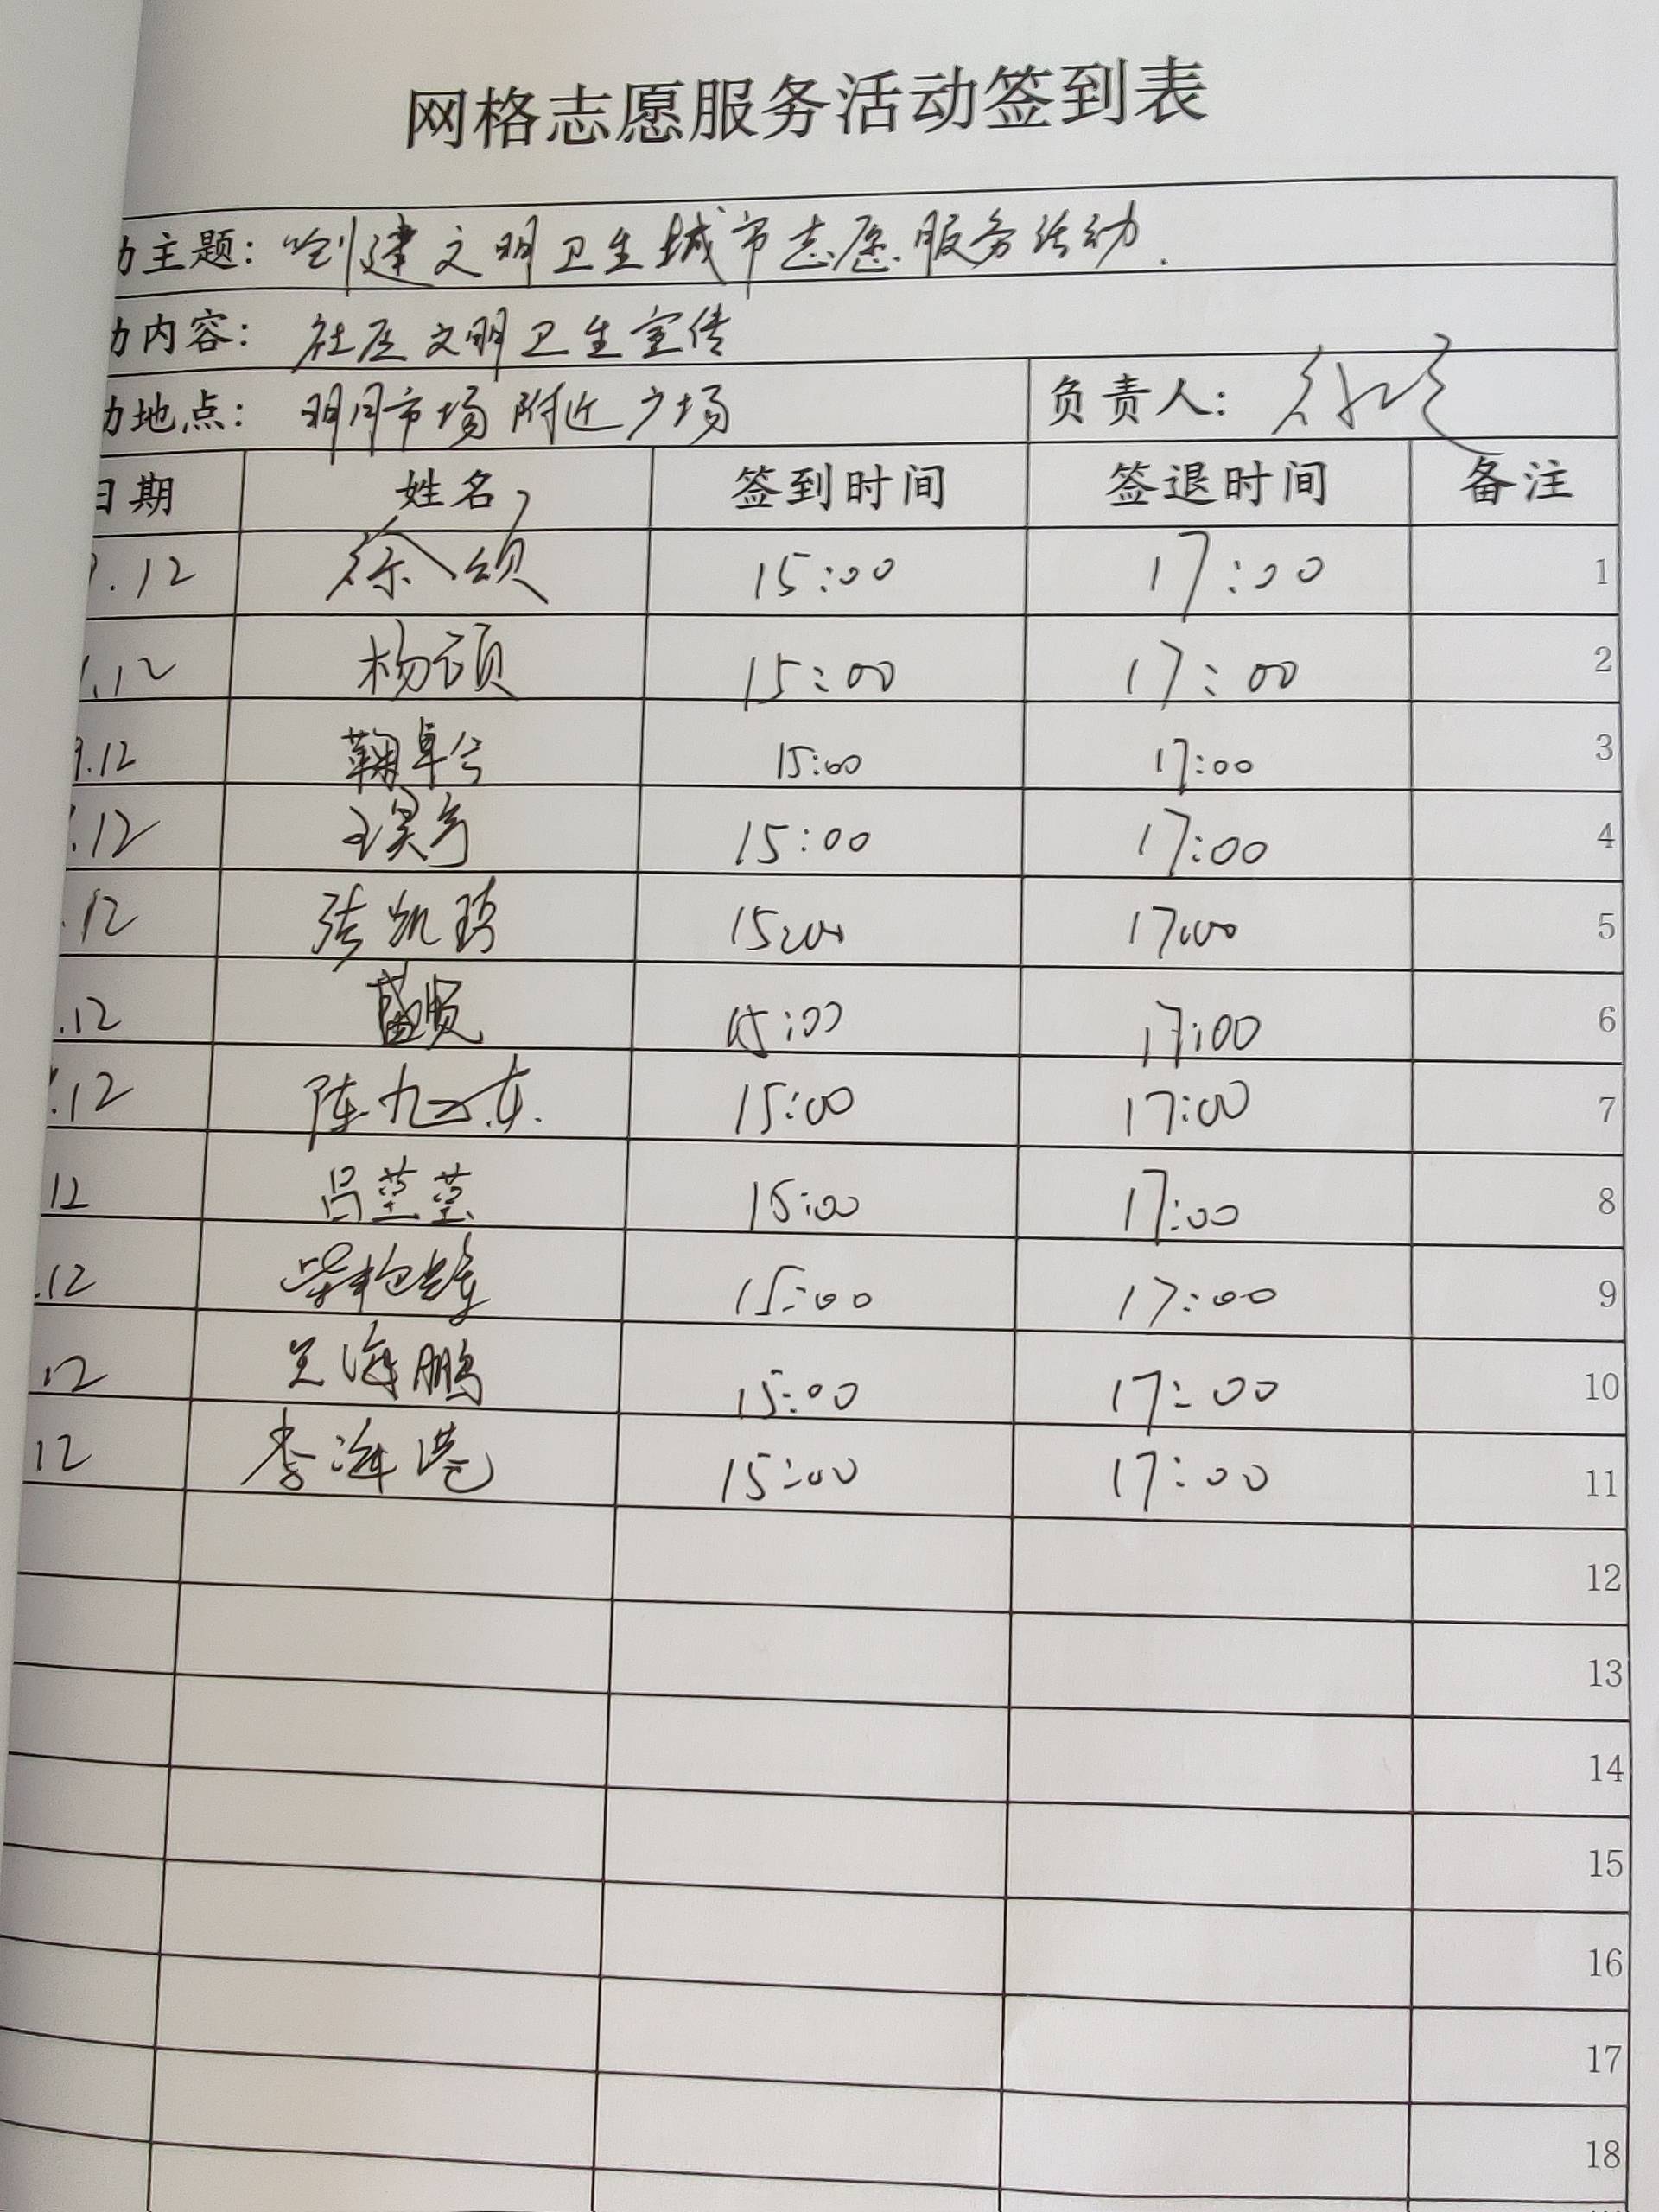 网格志愿服务活动签到表
动主题：创建文明卫生城市志愿服务活动.
动内容：社区文明卫生宣传
动地点：明月市场附近广场 负责人：
日期 姓名 签到时间 签退时间 备注
9.12 徐颂 15:00 17:00 1
.12 杨硕 15:00 17:00 2
9.12 鞠卓兮 15:00 17:00 3
.12 15:00 17:00 4
.12 张凯琦 15:00 17:00 5
.12 15:00 17:00 6
.12 陈旭东. 15:00 17:00 7
12 吕莹莹 15:00 17:00 8
.12 15:00 17:00 9
12 海鹏 15:00 17:00 10
12 李海港 15:00 17:00 11
12
13
14
15
16
17
18